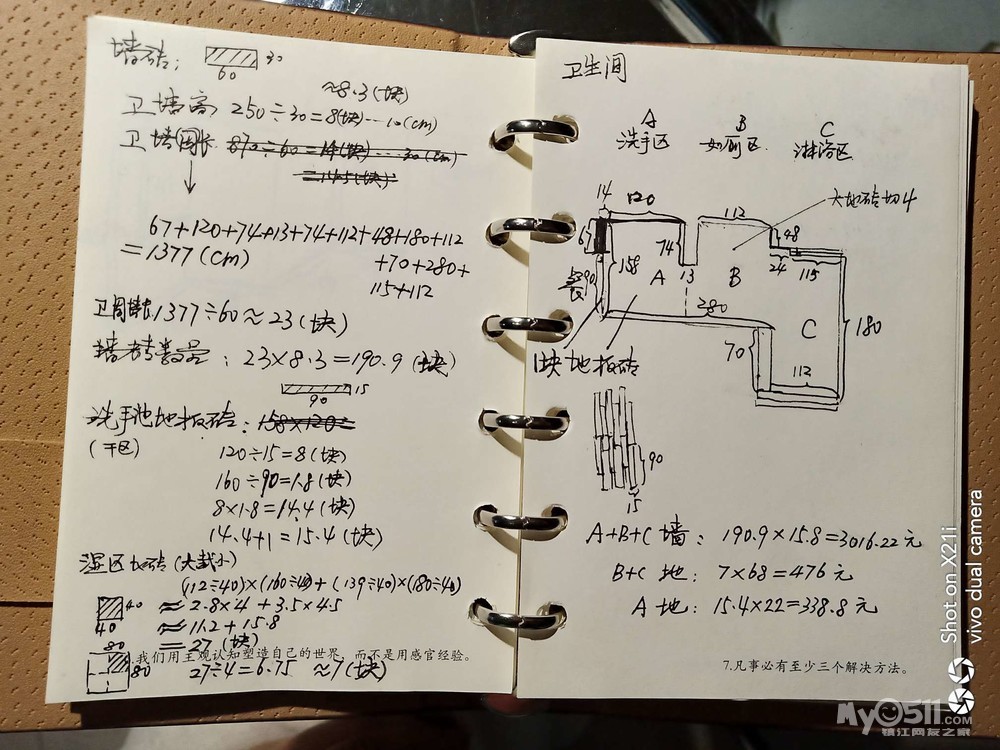 墙砖：
30
60
≈8.3(块)
卫墙高 250÷30=8(块)…10(cm)
卫墙周长 870÷60=14(块)…30(cm)
=14.5(块)
67+120+74+13+74+112+48+180+112
=1377(cm)
+70+280+
115+112
卫周墙长 1377÷60≈23(块)
墙砖数量：23×8.3=190.9(块)
15
90
洗手池地板砖：158×120=
(干区)
120÷15=8(块)
160÷90=1.8(块)
8×1.8=14.4(块)
14.4+1=15.4(块)
湿区地砖(大裁小)
(112÷40)×(160÷40)+(139÷40)×(180÷40)
40
≈2.8×4+3.5×4.5
40
≈11.2+15.8
80
=27(块)
我们用主观认知塑造自己的世界，而不是用感官经验。
80
27÷4=6.75 ≈7(块)
卫生间
A
B
C
洗手区
如厕区
淋浴区
大地砖切4
14
120
112
67
74
48
158
A
13
B
24
115
餐
90
280
C
180
70
1块地板砖
112
90
15
A+B+C 墙：190.9×15.8=3016.22元
B+C 地：7×68=476元
A 地：15.4×22=338.8元
7.凡事必有至少三个解决方法。
Shot on X21i
vivo dual camera
My0511.COM
镇江网友之家